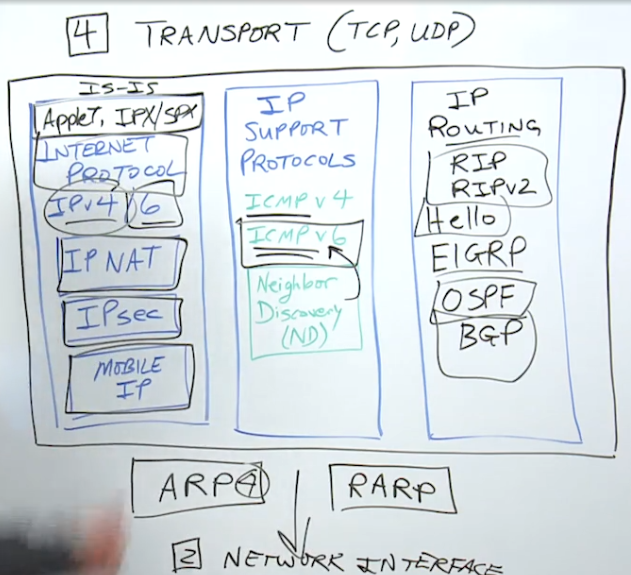 4 TRANSPORT (TCP, UDP)
IS-IS
AppleT, IPX/SPX
INTERNET
PROTOCOL
IPv4 6
IP NAT
IPsec
MOBILE
IP
IP
SUPPORT
PROTOCOLS
ICMP v4
ICMP v6
Neighbor
Discovery
(ND)
IP
ROUTING
RIP
RIPv2
Hello
EIGRP
OSPF
BGP
ARP4
RARP
2 NETWORK INTERFACE